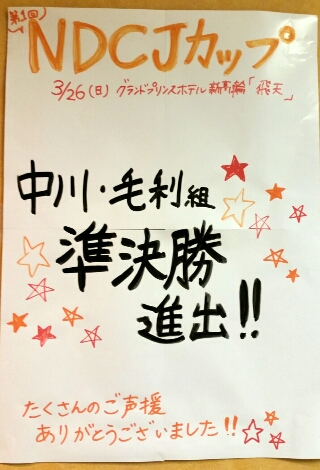 第1回
NDCJカップ
3/26(日) グランドプリンスホテル新高輪「飛天」
中川・毛利組
準決勝
進出!!
たくさんのご声援
ありがとうございました!!